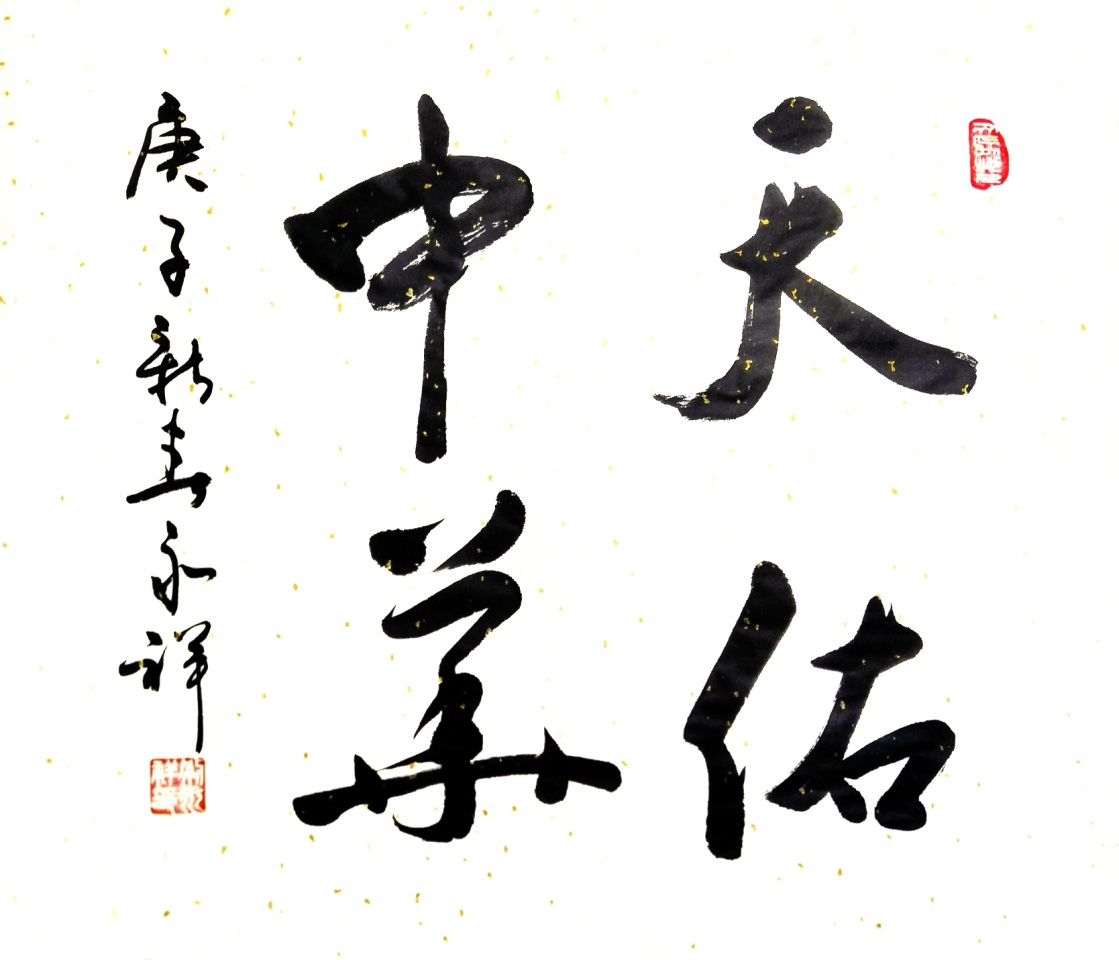 天佑
中華
庚子新春永祥